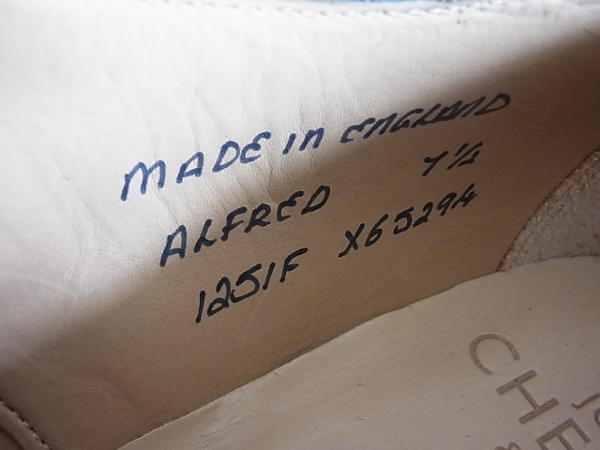 MADE IN ENGLAND
ALFRED 7½
1251F X65294
CHE